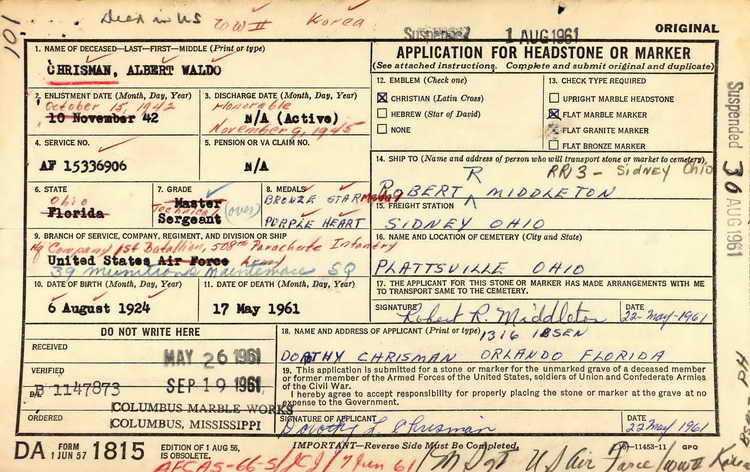 101 Died in US WW II Korea Suspended 1 AUG 1961 ORIGINAL
1. NAME OF DECEASED—LAST—FIRST—MIDDLE (Print or type)
CHRISMAN, ALBERT WALDO
2. ENLISTMENT DATE (Month, Day, Year)
October 15, 1942
10 November 42
3. DISCHARGE DATE (Month, Day, Year)
Honorable
N/A (Active)
November 9, 1945
4. SERVICE NO.
AF 15336906
5. PENSION OR VA CLAIM NO.
N/A
6. STATE
Ohio
Florida
7. GRADE
Master
Technical (over)
Sergeant
8. MEDALS
BRONZE STAR Medal
PURPLE HEART
9. BRANCH OF SERVICE, COMPANY, REGIMENT, AND DIVISION OR SHIP
Hq Company 1st Battalion, 508th Parachute Infantry
United States Air Force
39 Munitions Maintenance SQ
10. DATE OF BIRTH (Month, Day, Year)
6 August 1924
11. DATE OF DEATH (Month, Day, Year)
17 May 1961
DO NOT WRITE HERE
RECEIVED
MAY 26 1961
VERIFIED
B 1147873
SEP 19 1961
ORDERED
COLUMBUS MARBLE WORKS
COLUMBUS, MISSISSIPPI
APPLICATION FOR HEADSTONE OR MARKER
(See attached instructions. Complete and submit original and duplicate)
12. EMBLEM (Check one)
CHRISTIAN (Latin Cross)
HEBREW (Star of David)
NONE
13. CHECK TYPE REQUIRED
UPRIGHT MARBLE HEADSTONE
FLAT MARBLE MARKER
FLAT GRANITE MARKER
FLAT BRONZE MARKER
14. SHIP TO (Name and address of person who will transport stone or marker to cemetery)
RR13 - SIDNEY Ohio
ROBERT R MIDDLETON
15. FREIGHT STATION
SIDNEY OHIO
16. NAME AND LOCATION OF CEMETERY (City and State)
PLATTSVILLE OHIO
17. THE APPLICANT FOR THIS STONE OR MARKER HAS MADE ARRANGEMENTS WITH ME
TO TRANSPORT SAME TO THE CEMETERY.
SIGNATURE
Robert R. Middleton
DATE
22-May-1961
18. NAME AND ADDRESS OF APPLICANT (Print or type)
1316 IBSEN
DOROTHY CHRISMAN ORLANDO FLORIDA
19. This application is submitted for a stone or marker for the unmarked grave of a deceased member
or former member of the Armed Forces of the United States, soldiers of Union and Confederate Armies
of the Civil War.
I hereby agree to accept responsibility for properly placing the stone or marker at the grave at no
expense to the Government.
SIGNATURE OF APPLICANT
Dorothy L Chrisman
DATE
22 May 1961
DA FORM 1 JUN 57 1815
EDITION OF 1 AUG 56,
IS OBSOLETE.
IMPORTANT—Reverse Side Must Be Completed.
16—11453-11 GPO
AFCAS-66-S/JCJ/7 Jun 61 M Sgt US Air Force
Suspended 30 AUG 1961